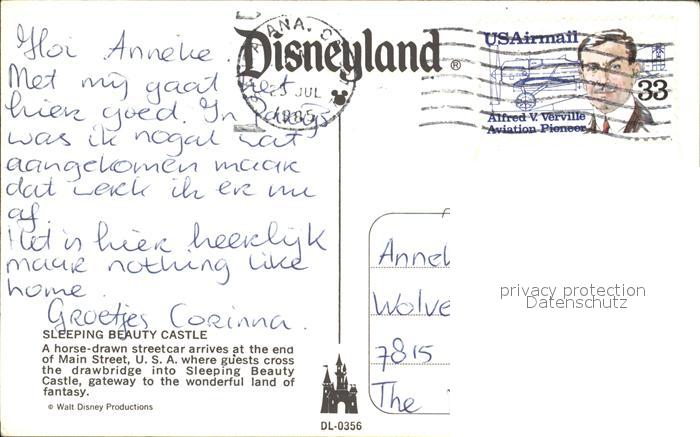 Hoi Anneke.
Met mij gaat het
hier goed. In
was ik nogal wat
aangekomen maar
dat werk ik er nu
af.
Het is hier heerlijk
maar nothing like
home.
Groetjes Corinna.
SLEEPING BEAUTY CASTLE
A horse-drawn streetcar arrives at the end
of Main Street, U. S. A. where guests cross
the drawbridge into Sleeping Beauty
Castle, gateway to the wonderful land of
fantasy.
© Walt Disney Productions
Disneyland ®
ANA, C
25 JUL
1985
USAirmail
33
Alfred V. Verville
Aviation Pioneer
Annek
Wolve
7815
The
privacy protection
Datenschutz
DL-0356